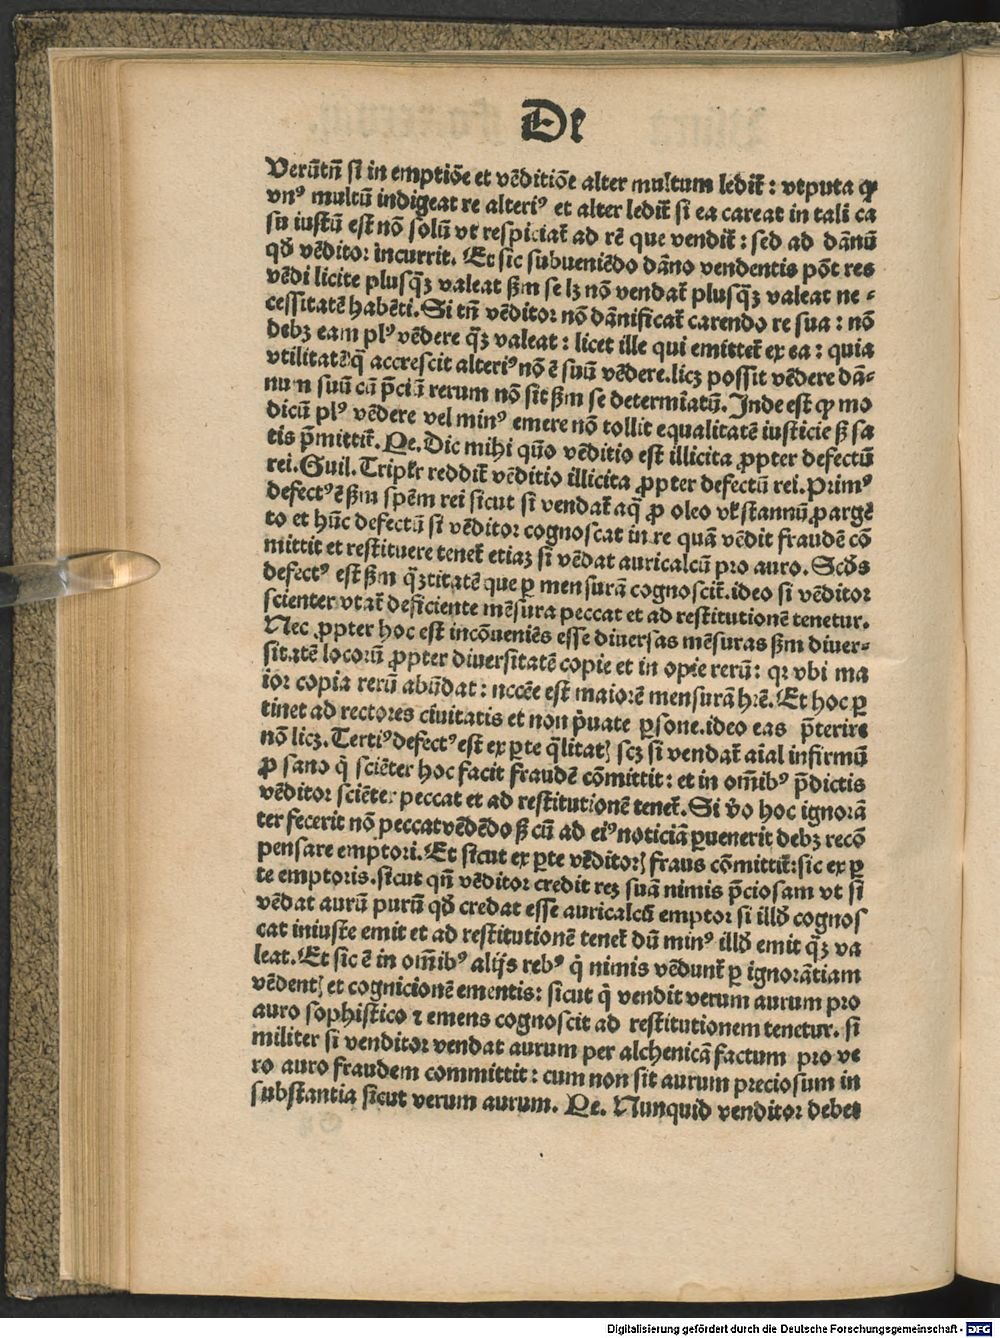 De
Verūtñ si in emptiōe et vēditiōe alter multum lediť : vtputa ꝙ
vnꝰ multū indigeat re alteriꝰ et alter lediť si ea careat in tali ca
su iustū est nō solū vt respiciať ad rē que vendiť : sed ad dānū
qđ vēditor incurrit. Et sic subueniēdo dāno vendentis pōt res
vēdi licite plusq̄ꝫ valeat ẜm se lꝫ nō vendať plusq̄ꝫ valeat ne-
cessitatē habēti. Si tñ vēditor nō dānificať carendo re sua : nō
debꝫ eam plꝰ vēdere q̄ꝫ valeat : licet ille qui emitteť ex ea : quia
vtilitatē q̄ accrescit alteriꝰ nō ē suū vēdere. licꝫ possit vēdere dā-
num suū cū p̄ciū rerum nō sit ẜm se determīatū. Inde est ꝙ mo
dicū plꝰ vēdere vel minꝰ emere nō tollit equalitatē iusticie ß sa
tis p̄mittiť. Pe. Dic mihi quō vēditio est illicita ꝓpter defectū
rei. Guil. Tripťr reddiť vēditio illicita ꝓpter defectū rei. Primꝰ
defectꝰ ē ẜm spēm rei sicut si vendať aq̄ ꝓ oleo vť stannū ꝓ argē
to et hūc defectū si vēditor cognoscat in re quā vēdit fraudē cō
mittit et restituere teneť etiaꝫ si vēdat auricalcū pro auro. Scđs
defectꝰ est ẜm q̄ꝫtitatē que ꝑ mensurā cognosciť. ideo si vēditor
scienter vtať deficiente mēsura peccat et ad restitutionē tenetur.
Nec ꝓpter hoc est incōueniēs esse diuersas mēsuras ẜm diuer-
sitatē locorū ꝓpter diuersitatē copie et in opie rerū : qꝛ vbi ma
ior copia rerū abūdat : nccēe est maiorē mensurā hr̄e. Et hoc ꝑ
tinet ad rectores ciuitatis et non p̄uate ꝑsone. ideo eas p̄terire
nō licꝫ. Tertiꝰ defectꝰ est ex ꝑte q̄litatꝭ scꝫ si vendať aīal infirmū
ꝓ sano q̄ sciēter hoc facit fraudē cōmittit : et in om̄ibꝰ p̄dictis
vēditor sciēter peccat et ad restitutionē teneť. Si v̄o hoc ignorā
ter fecerit nō peccat vēdēdo ß cū ad eiꝰ noticiā ꝑuenerit debꝫ recō
pensare emptori. Et sicut ex ꝑte vēditorꝭ fraus cōmittiť : sic ex ꝑ
te emptoris. sicut qñ vēditor credit reꝫ suā nimis p̄ciosam vt si
vēdat aurū purū qđ credat esse auricalcū emptor si illđ cognos
cat iniuste emit et ad restitutionē teneť dū minꝰ illđ emit q̄ꝫ va
leat. Et sic ē in om̄ibꝰ alijs rebꝰ q̄ nimis vēdunť ꝑ ignorātiam
vēdentꝭ et cognicionē ementis : sicut q̄ vendit verum aurum pro
auro sophistico ⁊ emens cognoscit ad restitutionem tenetur. si
militer si venditor vendat aurum per alchenicā factum pro ve
ro auro fraudem committit : cum non sit aurum preciosum in
substantia sicut verum aurum. Pe. Nunquid venditor debet
Digitalisierung gefördert durch die Deutsche Forschungsgemeinschaft - DFG